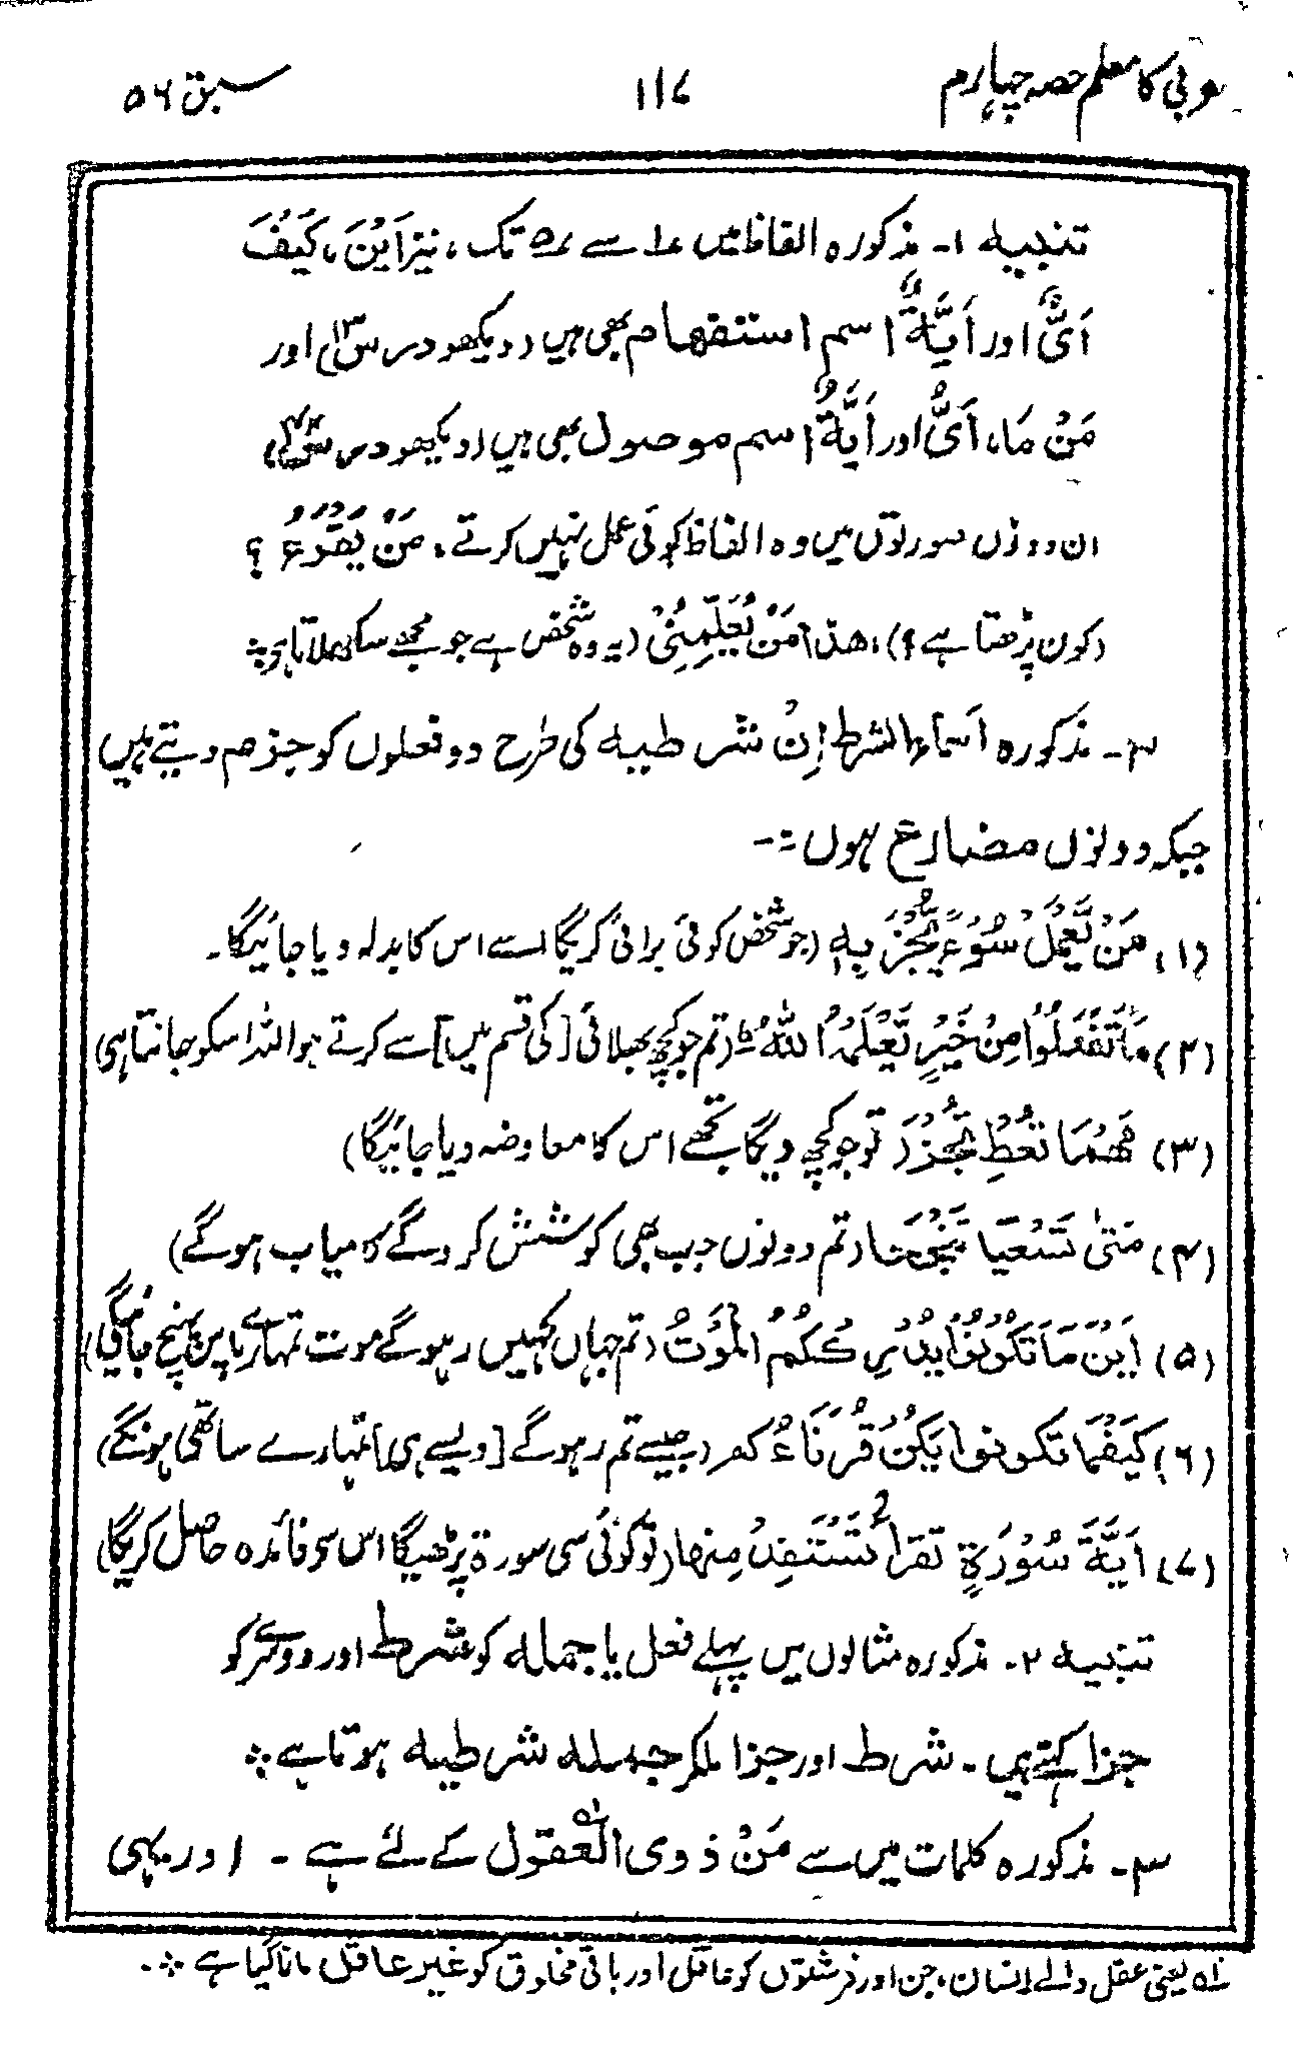 عربی کا معلم حصہ چہارم
۱۱۷
سبق ۵۶
تنبیہ ۱۔ مذکورہ الفاظ میں ۱ سے ۵ تک، نیز اَیْنَ، کَیْفَ
اَیٌّ اور اَیَّةٌ اسم استفہام بھی ہیں (دیکھو درس ۱۳) اور
مَنْ مَا، اَیٌّ اور اَیَّةٌ اسم موصول بھی ہیں (دیکھو درس
ان دونوں صورتوں میں وہ الفاظ کوئی عمل نہیں کرتے، مَنْ یَقْرَءُ ؟
(کون پڑھتا ہے ؟)، ھذا مَنْ یُعَلِّمُنِیْ (یہ وہ شخص ہے جو مجھے سکھلاتا ہو) ؞
۲۔ مذکورہ اَسْمَاءُ الشرط اِنْ شرطیہ کی طرح دو فعلوں کو جزم دیتے ہیں
جبکہ دونوں مضارع ہوں :۔
(۱) مَنْ یَّعْمَلْ سُوْءً یُّجْزَ بِهٖ (جو شخص کوئی برائی کریگا اسے اس کا بدلہ دیا جائیگا۔
(۲) مَا تَفْعَلُوْا مِنْ خَیْرٍ یَّعْلَمْهُ اللّٰهُ ط (تم جو کچھ بھلائی [کی قسم میں] سے کرتے ہو اللہ اسکو جانتا ہی
(۳) مَهْمَا تُعْطِ تُجْزَ (تو جو کچھ دیگا تجھے اس کا معاوضہ دیا جائیگا)
(۴) مَتٰی تَسْعَیَا تَنْجَحَا (تم دونوں جب بھی کوشش کروگے کامیاب ہوگے)
(۵) اَیْنَ مَا تَکُوْنُوْا یُدْرِکْکُمُ الْمَوْتُ (تم جہاں کہیں رہوگے موت تمہارے پاس پہنچ جائیگی)
(۶) کَیْفَمَا تکونوا یَکُنْ قُرَنَاءُکم (جیسے تم رہوگے [ویسے ہی] تمہارے ساتھی ہونگے)
(۷) اَیَّةَ سُوْرَةٍ تقرأ تَسْتَفِدْ مِنها (تو کوئی سی سورة پڑھیگا اس سے فائدہ حاصل کریگا)
تنبیہ ۲۔ مذکورہ مثالوں میں پہلے فعل یا جملہ کو شرط اور دوسرے کو
جزا کہتے ہیں۔ شرط اور جزا ملکر جملہ شرطیہ ہوتا ہے ؞
۳۔ مذکورہ کلمات میں سے مَنْ ذوی العقول ۱؎ کے لئے ہے ۔ اور یہی
۱؎ یعنی عقل والے انسان، جن اور فرشتوں کو عاقل اور باقی مخلوق کو غیر عاقل مانا گیا ہے ؞